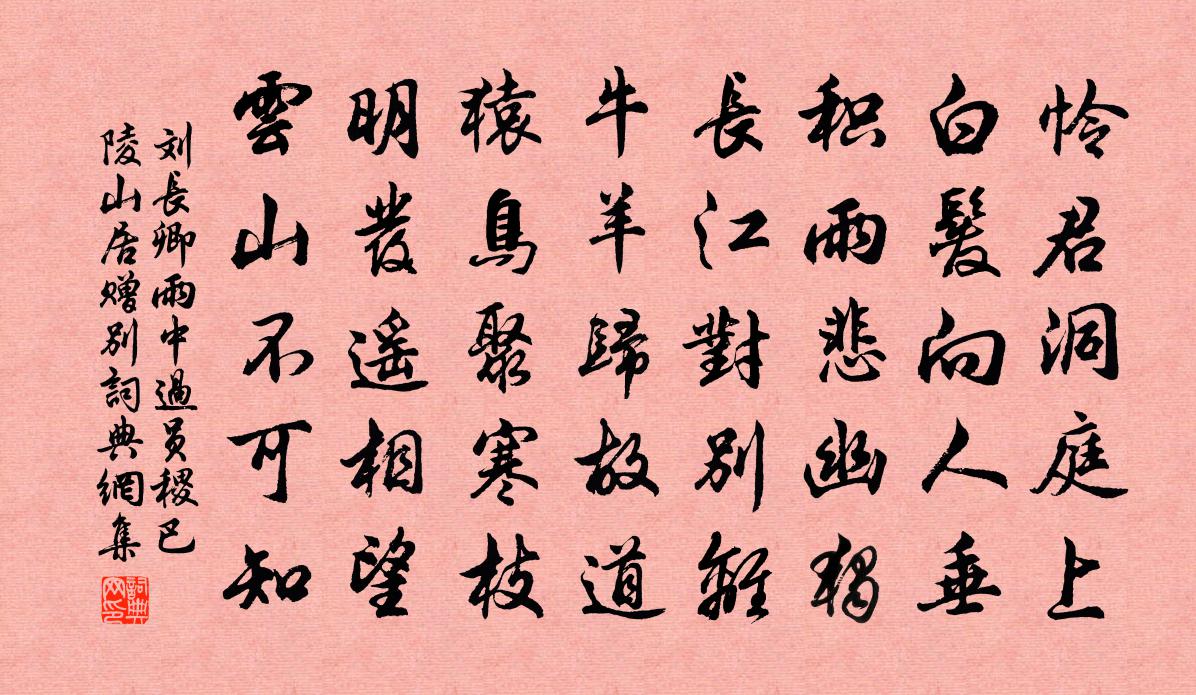 怜君洞庭上
白髮向人垂
积雨悲幽獨
長江對別離
牛羊歸故道
猿鳥聚寒枝
明發遥相望
雲山不可知
刘長卿雨中過员稷巴
陵山居赠别詞典網集
詞典網印